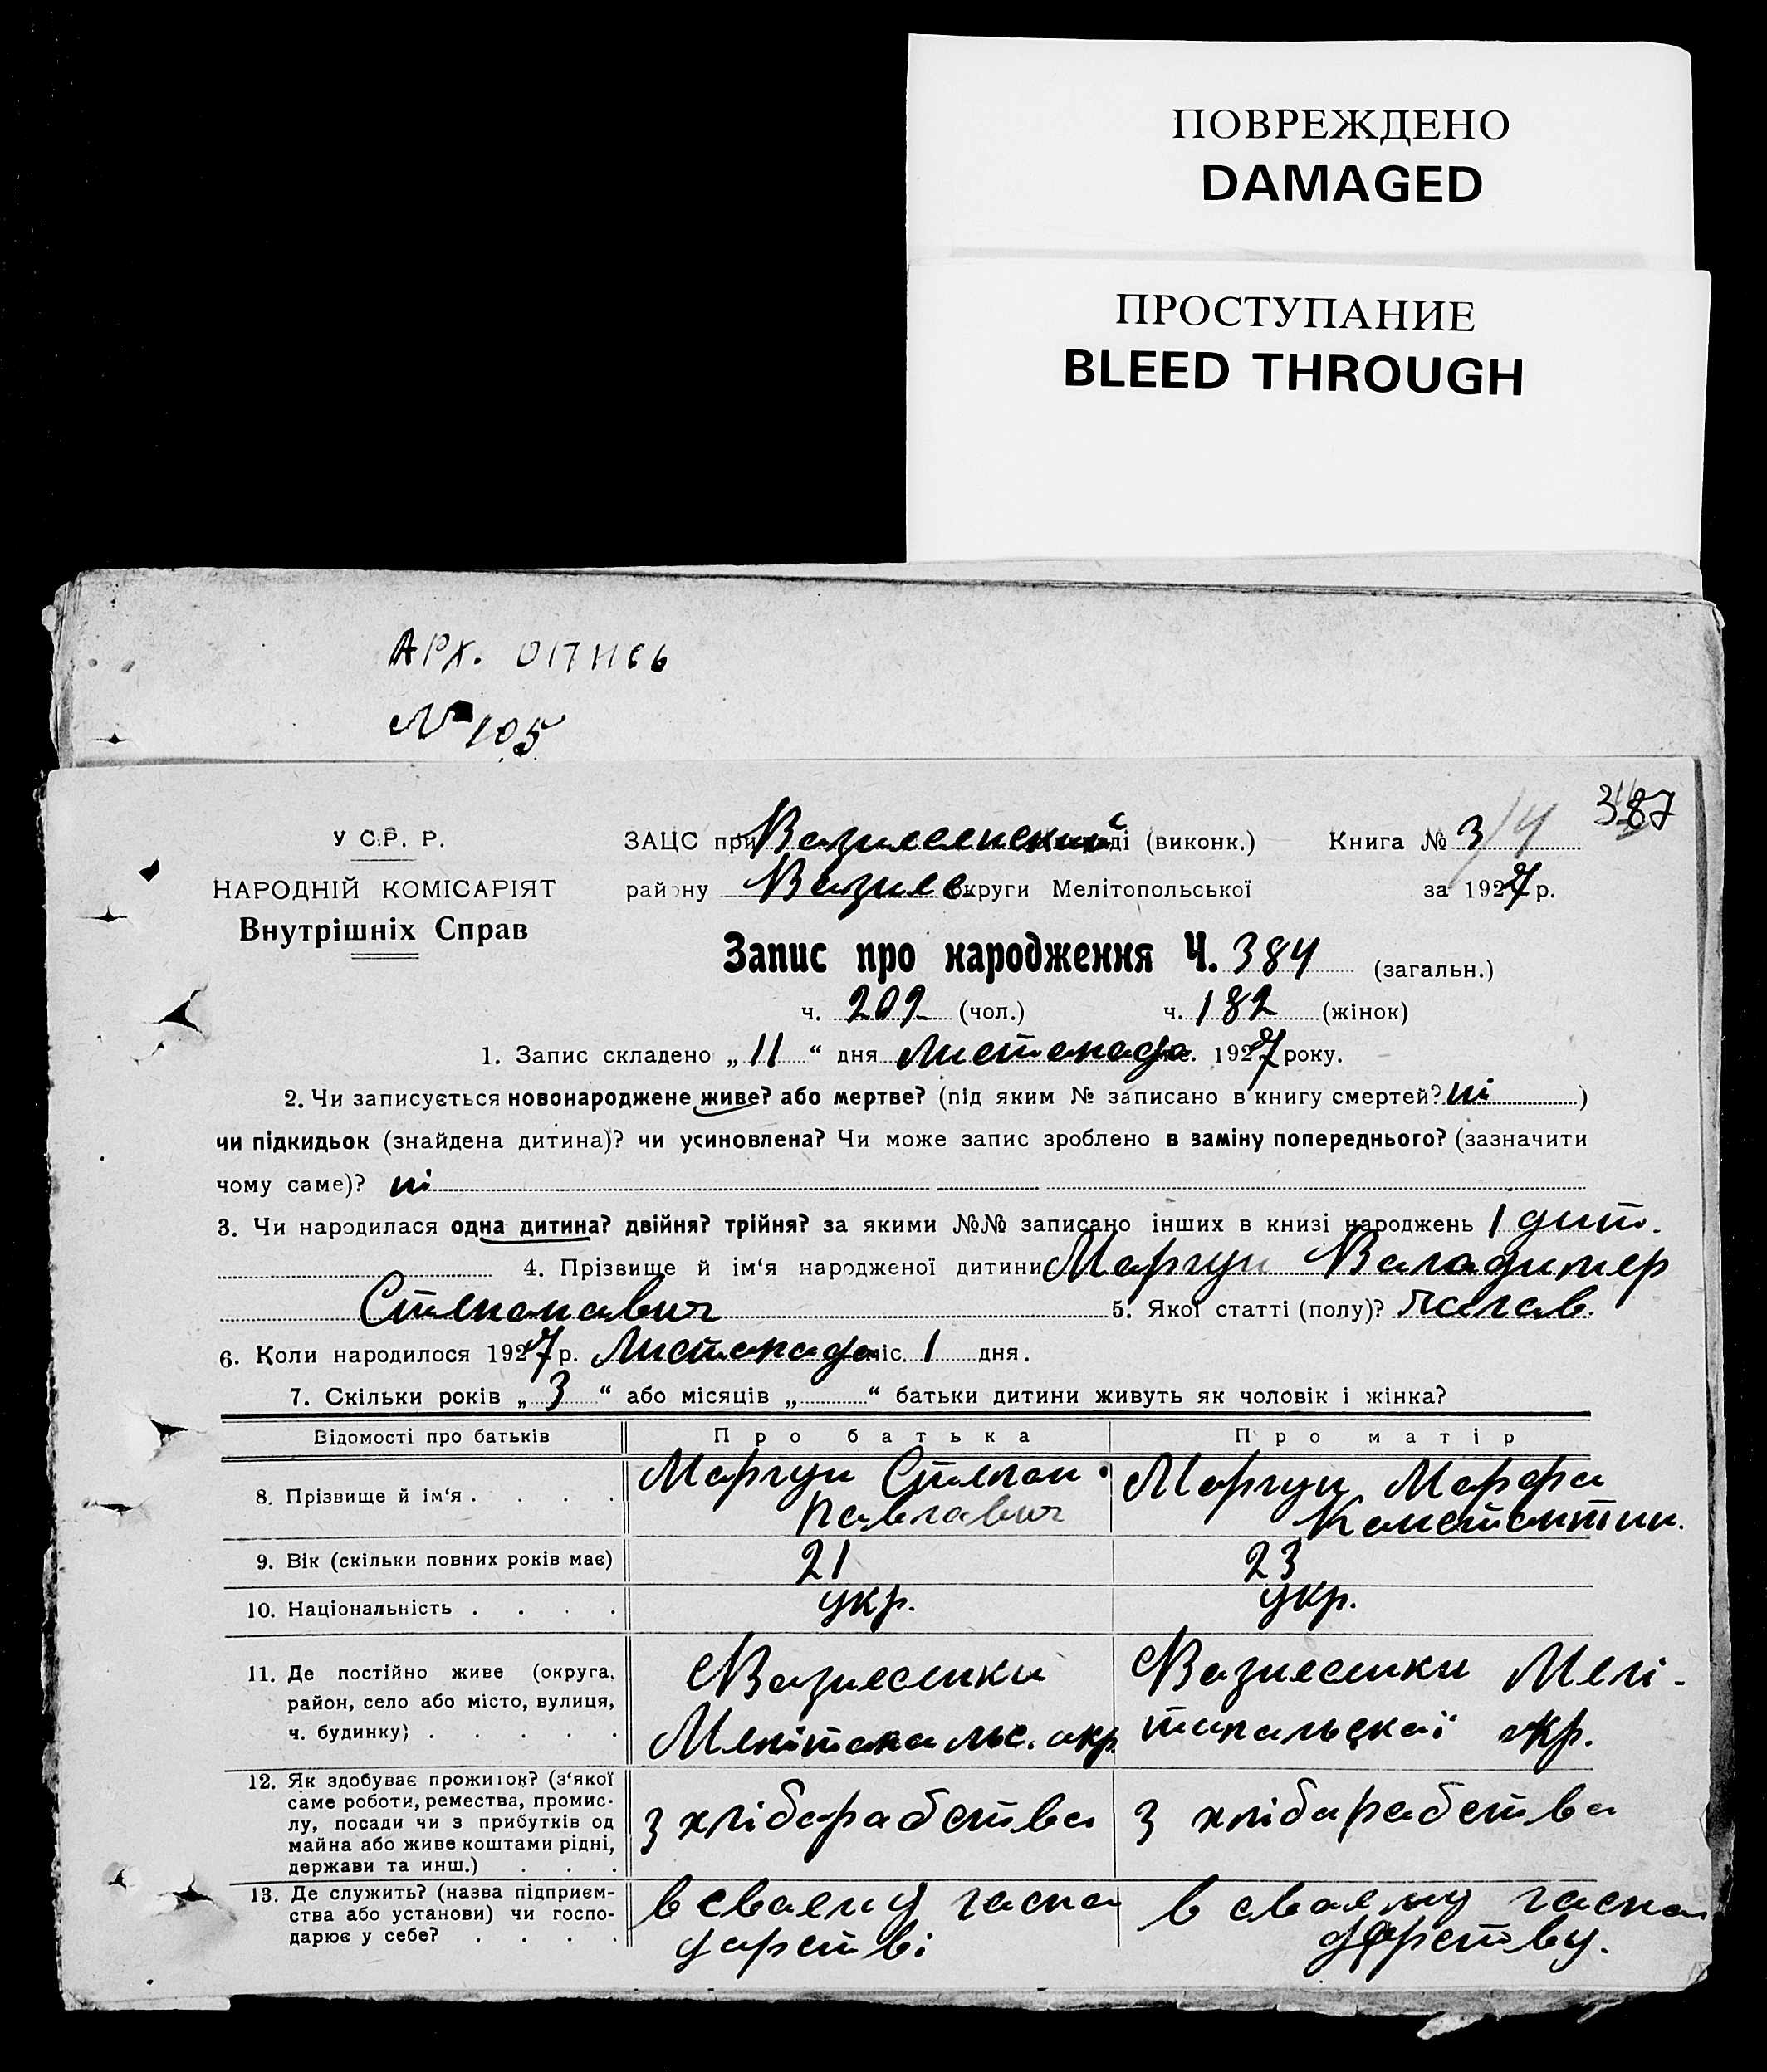 ПОВРЕЖДЕНО
DAMAGED
ПРОСТУПАНИЕ
BLEED THROUGH
АРХ.
№ 105
387
У С.Р. Р.
НАРОДНІЙ КОМІСАРІЯТ
Внутрішніх Справ
ЗАЦС при Вазнесенский ді (виконк.) Книга № 3/4
району Вазнес округи Мелітопольської за 1927 р.
Запис про народження Ч. 384 (загальн.)
ч. 202 (чол.) ч. 182 (жінок)
1. Запис складено „ 11 “ дня Листопада 1927 року.
2. Чи записується новонароджене живе? або мертве? (під яким № записано в книгу смертей? ні )
чи підкидьок (знайдена дитина)? чи усиновлена? Чи може запис зроблено в заміну попереднього? (зазначити
чому саме)? ні
3. Чи народилася одна дитина? двійня? трійня? за якими №№ записано інших в книзі народжень 1 дит.
4. Прізвище й ім‘я народженої дитини Моргун Валадимер
Степанавич 5. Якої статті (полу)? чалав.
6. Коли народилося 1927 р. Листопада міс. 1 дня.
7. Скільки років „ 3 “ або місяців „ “ батьки дитини живуть як чоловік і жінка?
Відомості про батьків Про батька Про матір
8. Прізвище й ім‘я . . . . Моргун Степан Павлавич Моргун Марфа Констянтин.
9. Вік (скільки повних років має) 21 23
10. Національність . . . . укр. укр.
11. Де постійно живе (округа, район, село або місто, вулиця, ч. будинку) . . . . . Вазнесенки Мелітапальс. окр. Вазнесенки Мелі-тапальскаї окр.
12. Як здобуває прожиток? (з‘якої саме роботи, ремества, промислу, посади чи з прибутків од майна або живе коштами рідні, держави та инш.) . . . з хлібарабства з хлібарабства
13. Де служить? (назва підприємства або установи) чи господарює у себе? . . . . в сваему гаспадарстві в сваему гаспадарству.